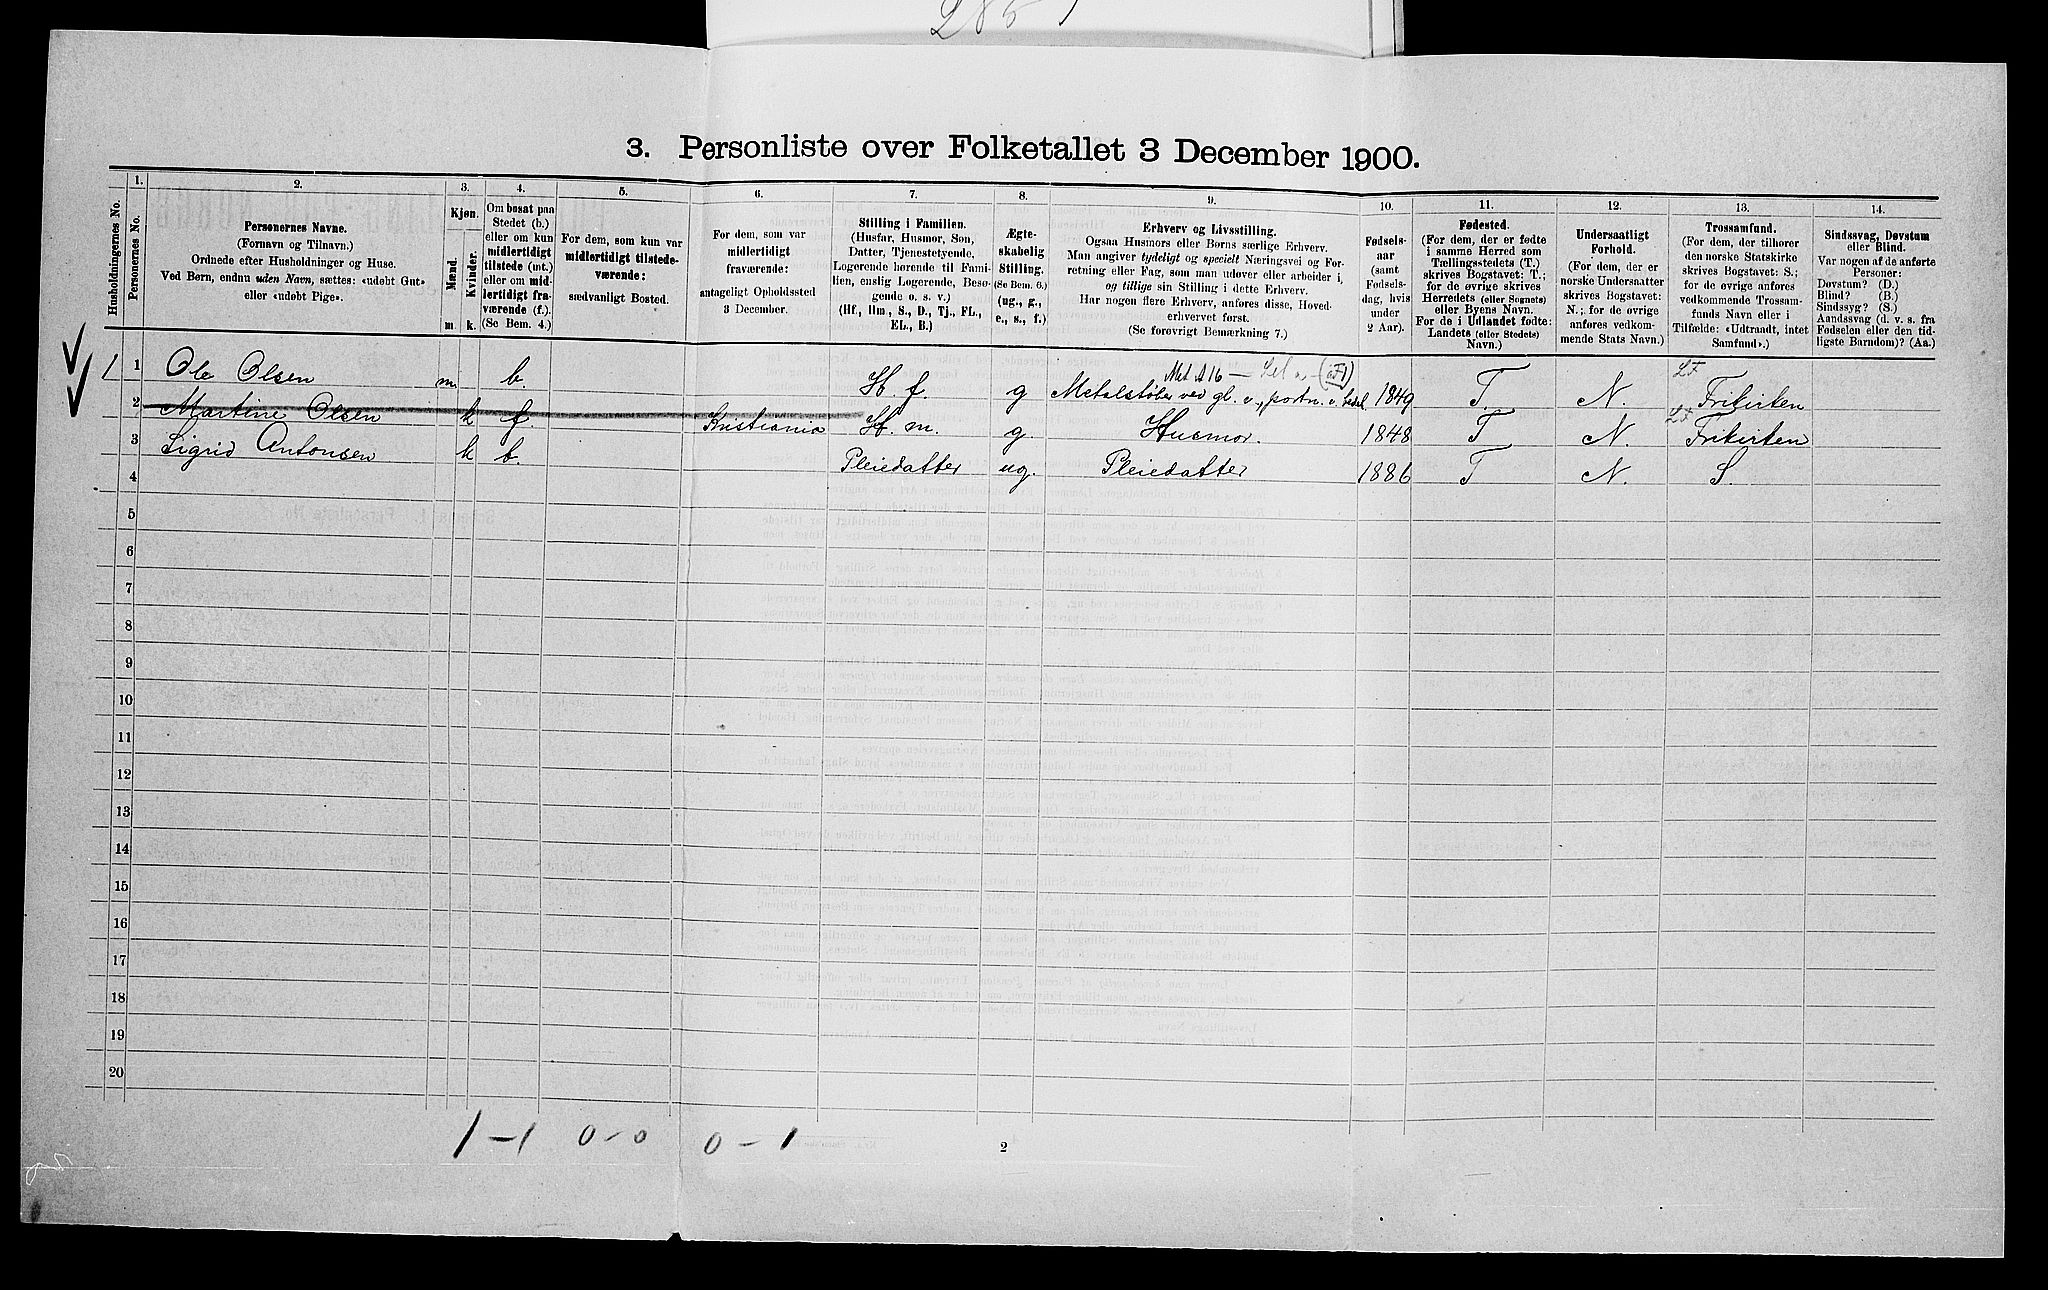 3. Personliste over Folketallet 3 December 1900.
Husholdningernes No.
1.
Personernes No.
2.
Personernes Navne.
(Fornavn og Tilnavn.)
Ordnede efter Husholdninger og Huse.
Ved Børn, endnu uden Navn, sættes: «udøbt Gut»
eller «udøbt Pige».
3.
Kjøn.
Mænd.
Kvinder.
m.
k.
4.
Om bosat paa
Stedet (b.)
eller om kun
midlertidigt
tilstede (mt.)
eller om mid-
lertidigt fra-
værende (f.).
(Se Bem. 4.)
5.
For dem, som kun var
midlertidigt tilstede-
værende:
sædvanligt Bosted.
6.
For dem, som var
midlertidigt
fraværende:
antageligt Opholdssted
3 December.
7.
Stilling i Familien.
(Husfar, Husmor, Søn,
Datter, Tjenestetyende,
Logerende hørende til Fami-
lien, enslig Logerende, Besø-
gende o. s. v.)
(Hf., Hm., S., D., Tj., FL.,
EL., B.)
8.
Ægte-
skabelig
Stilling.
(Se Bem. 6.)
(ug., g.,
e., s., f.)
9.
Erhverv og Livsstilling.
Ogsaa Husmors eller Børns særlige Erhverv.
Man angiver tydeligt og specielt Næringsvei og For-
retning eller Fag, som man udøver eller arbeider i,
og tillige sin Stilling i dette Erhverv.
Har nogen flere Erhverv, anføres disse, Hoved-
erhvervet først.
(Se forøvrigt Bemærkning 7.)
10.
Fødsels-
aar
(samt
Fødsels-
dag, hvis
under
2 Aar).
11.
Fødested.
(For dem, der er fødte
i samme Herred som
Tællingsstedets (T.)
skrives Bogstavet: T.;
for de øvrige skrives
Herredets (eller Sognets)
eller Byens Navn.
For de i Udlandet fødte:
Landets (eller Stedets)
Navn.)
12.
Undersaatligt
Forhold.
(For dem, der er
norske Undersaatter
skrives Bogstavet:
N.; for de øvrige
anføres vedkom-
mende Stats Navn.)
13.
Trossamfund.
(For dem, der tilhører
den norske Statskirke
skrives Bogstavet: S.;
for de øvrige anføres
vedkommende Trossam-
funds Navn eller i
Tilfælde: «Udtraadt, intet
Samfund».)
14.
Sindssvag, Døvstum
eller Blind.
Var nogen af de anførte
Personer:
Døvstum? (D.)
Blind? (B.)
Sindssyg? (S.)
Aandssvag (d. v. s. fra
Fødselen eller den tid-
ligste Barndom)? (Aa.)
1 1 Ole Olsen m. b. H. f. g Metalstøber ved gl. 1849 T. N. LF Frikirken
2 Martine Olsen k f. Kristiania H. m. g. Husmor. 1848 T N. LF Frikirken
3 Sigrid Antonsen k b. Pleiedatter ug. Pleiedatter 1886 T N. S.
4
5
6
7
8
9
10
11
12
13
14
15
16
17
18
19
20
1 – 1 0 – 0 0 – 1
2